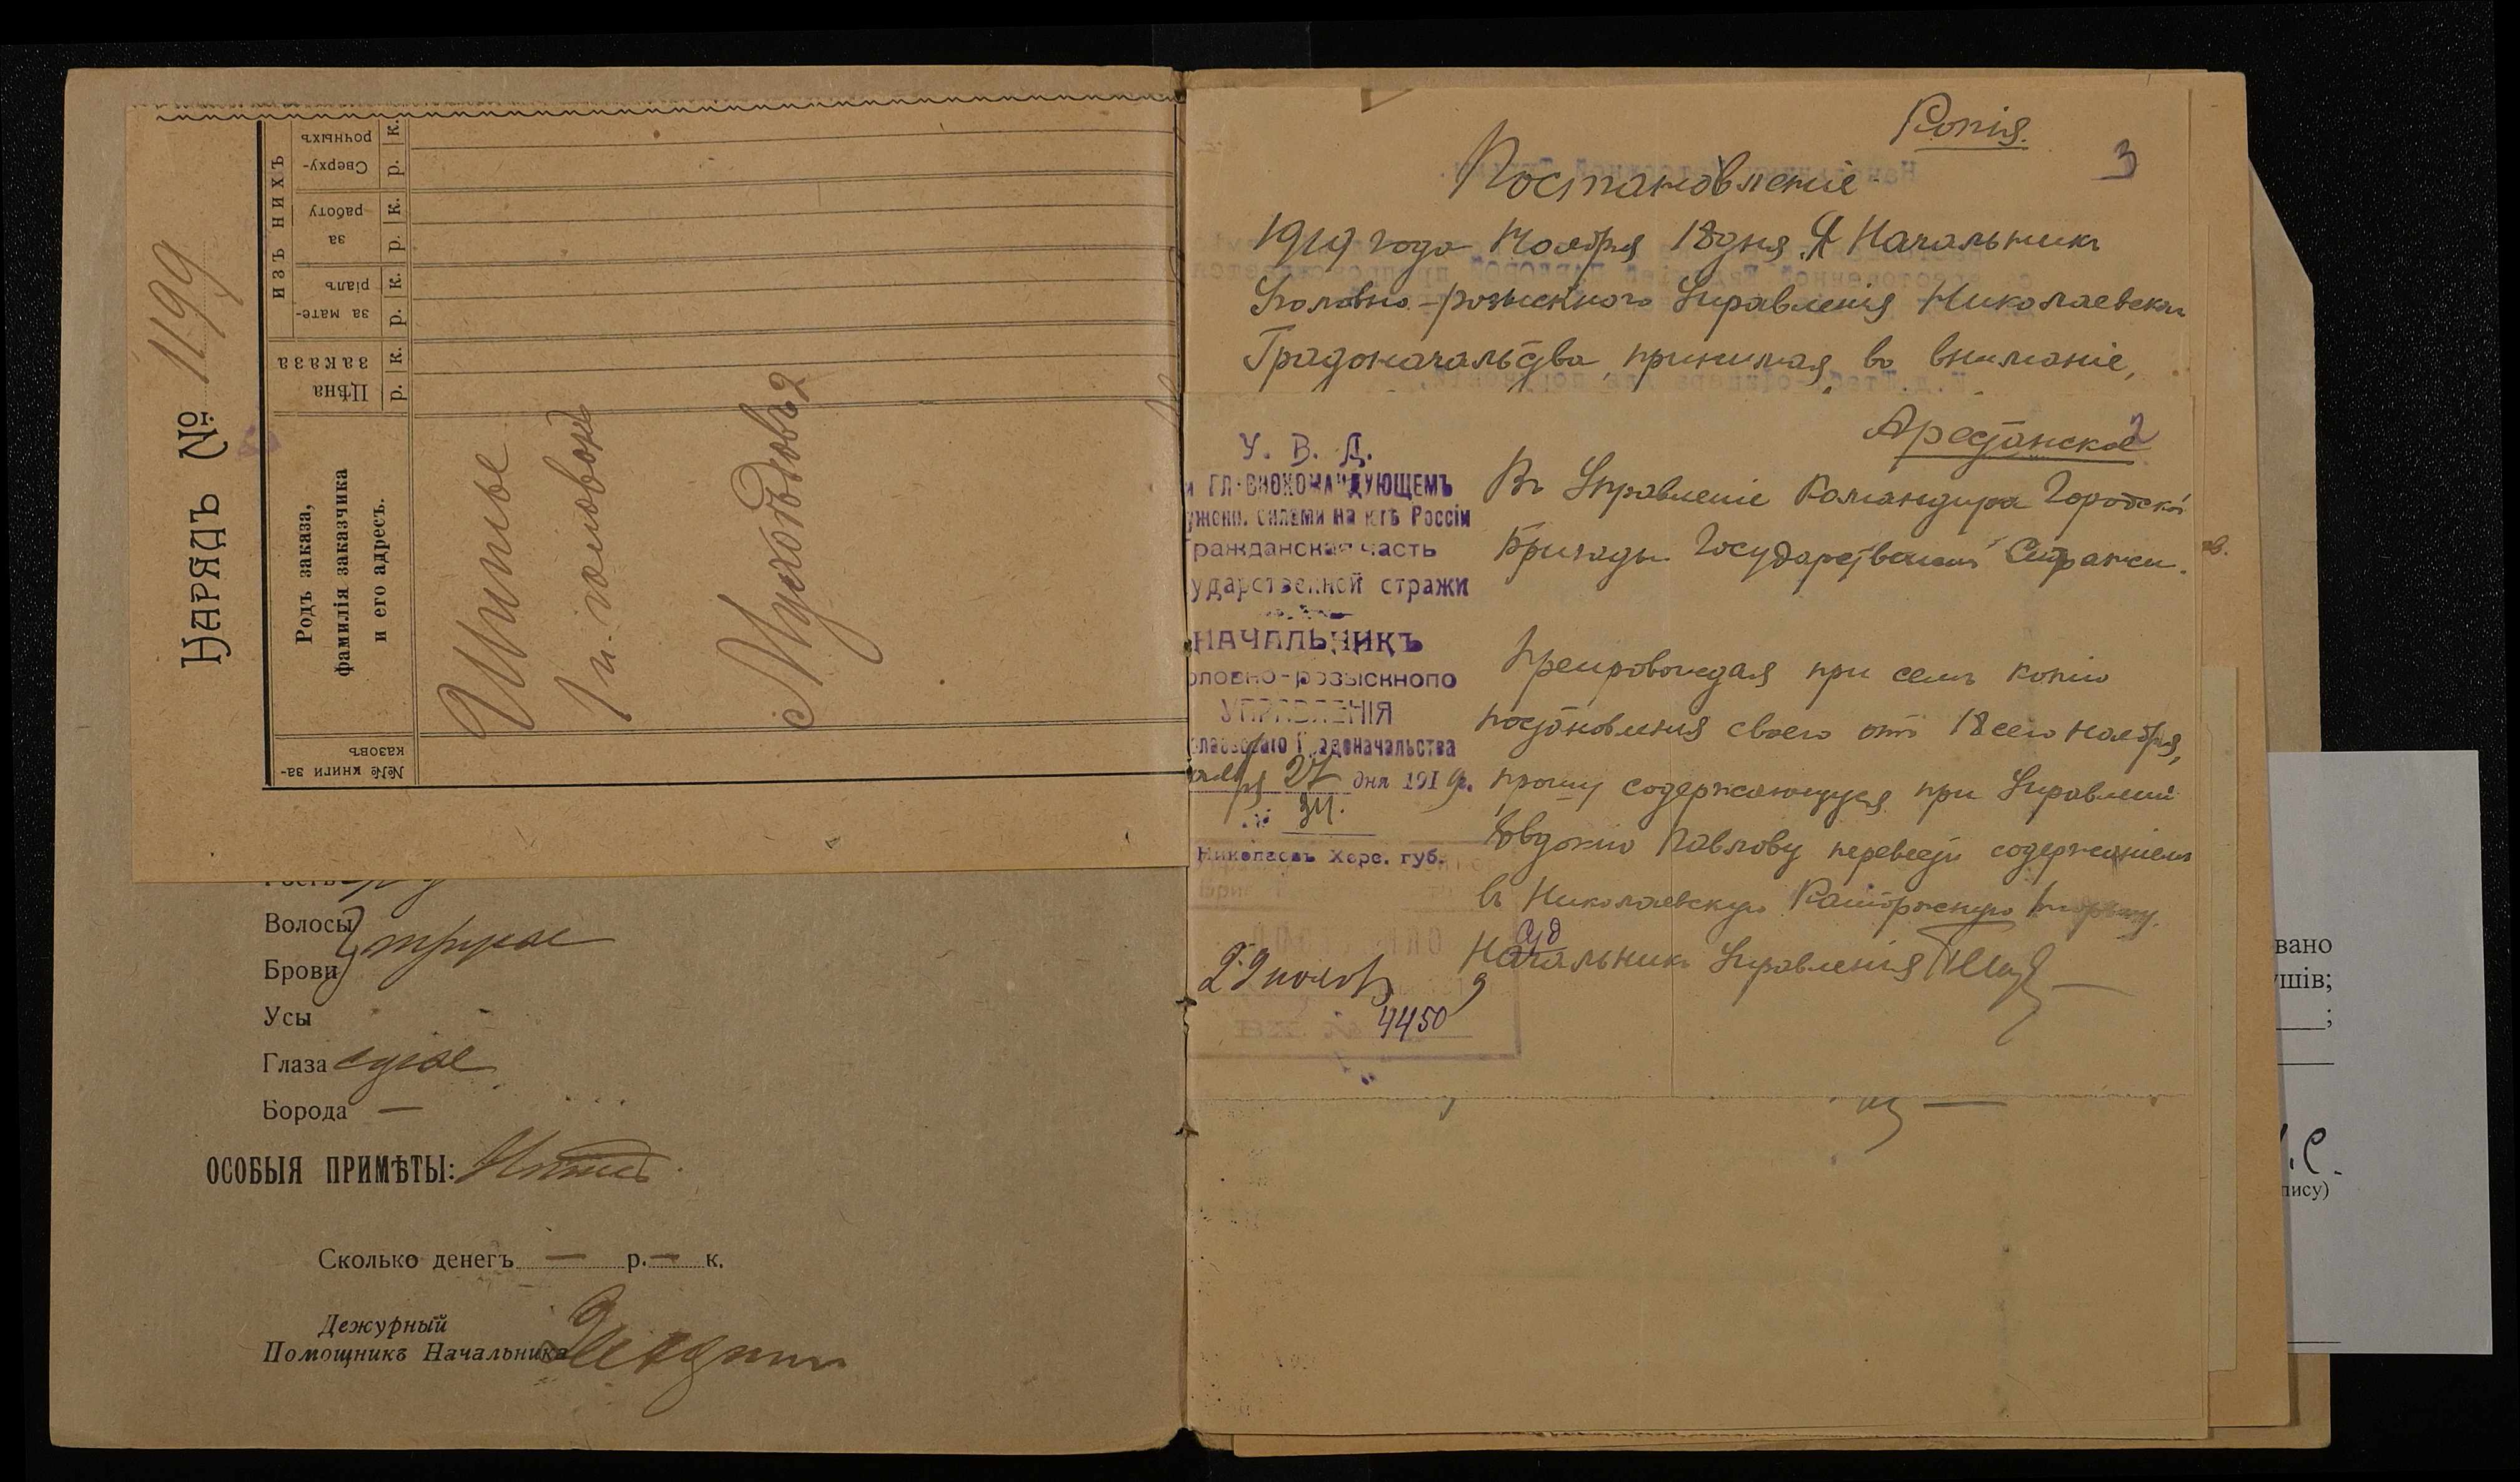 НАРЯДЪ № 1199
№№ книги за-
казовъ
Родъ заказа,
фамилія заказчика
и его адресъ.
Цѣна
заказа
р. к.
ИЗЪ НИХЪ
за мате-
ріалъ
р. к.
за
работу
р. к.
Сверху-
рочныхъ
р. к.
Волосы
Брови
Усы
Глаза карие
Борода —
ОСОБЫЯ ПРИМѢТЫ:
Сколько денегъ — р. — к.
Дежурный
Помощникъ Начальника
Копія.
3
Постановленіе
1919 года Ноября 18 дня. Я Начальникъ
Уголовно-розыскного Управленія Николаевскаго
Градоначальства, принимая во вниманіе,
Арестанское
2
У. В. Д.
и ГЛАВНОКОМАНДУЮЩЕМЪ
ужен. силами на югѣ Россіи
Гражданская часть
ударственной стражи
НАЧАЛЬНИКЪ
оловно-розыскного
УПРАВЛЕНІЯ
олаевскаго Градоначальства
27 дня 1919 г.
№ 34.
Николаевъ Херс. губ.
Въ Управленіе Командира Городской
Бригады Государственной Стражи.
Препровождая при семъ копію
постановленія своего отъ 18 сего ноября,
прошу содержающуюся при Управленіи
Евдокію Павлову перевести содержаніемъ
въ Николаевскую Каторжную тюрьму.
Начальникъ Управленія
29 ноября 9
4450
вано
ушів;
;
пису)